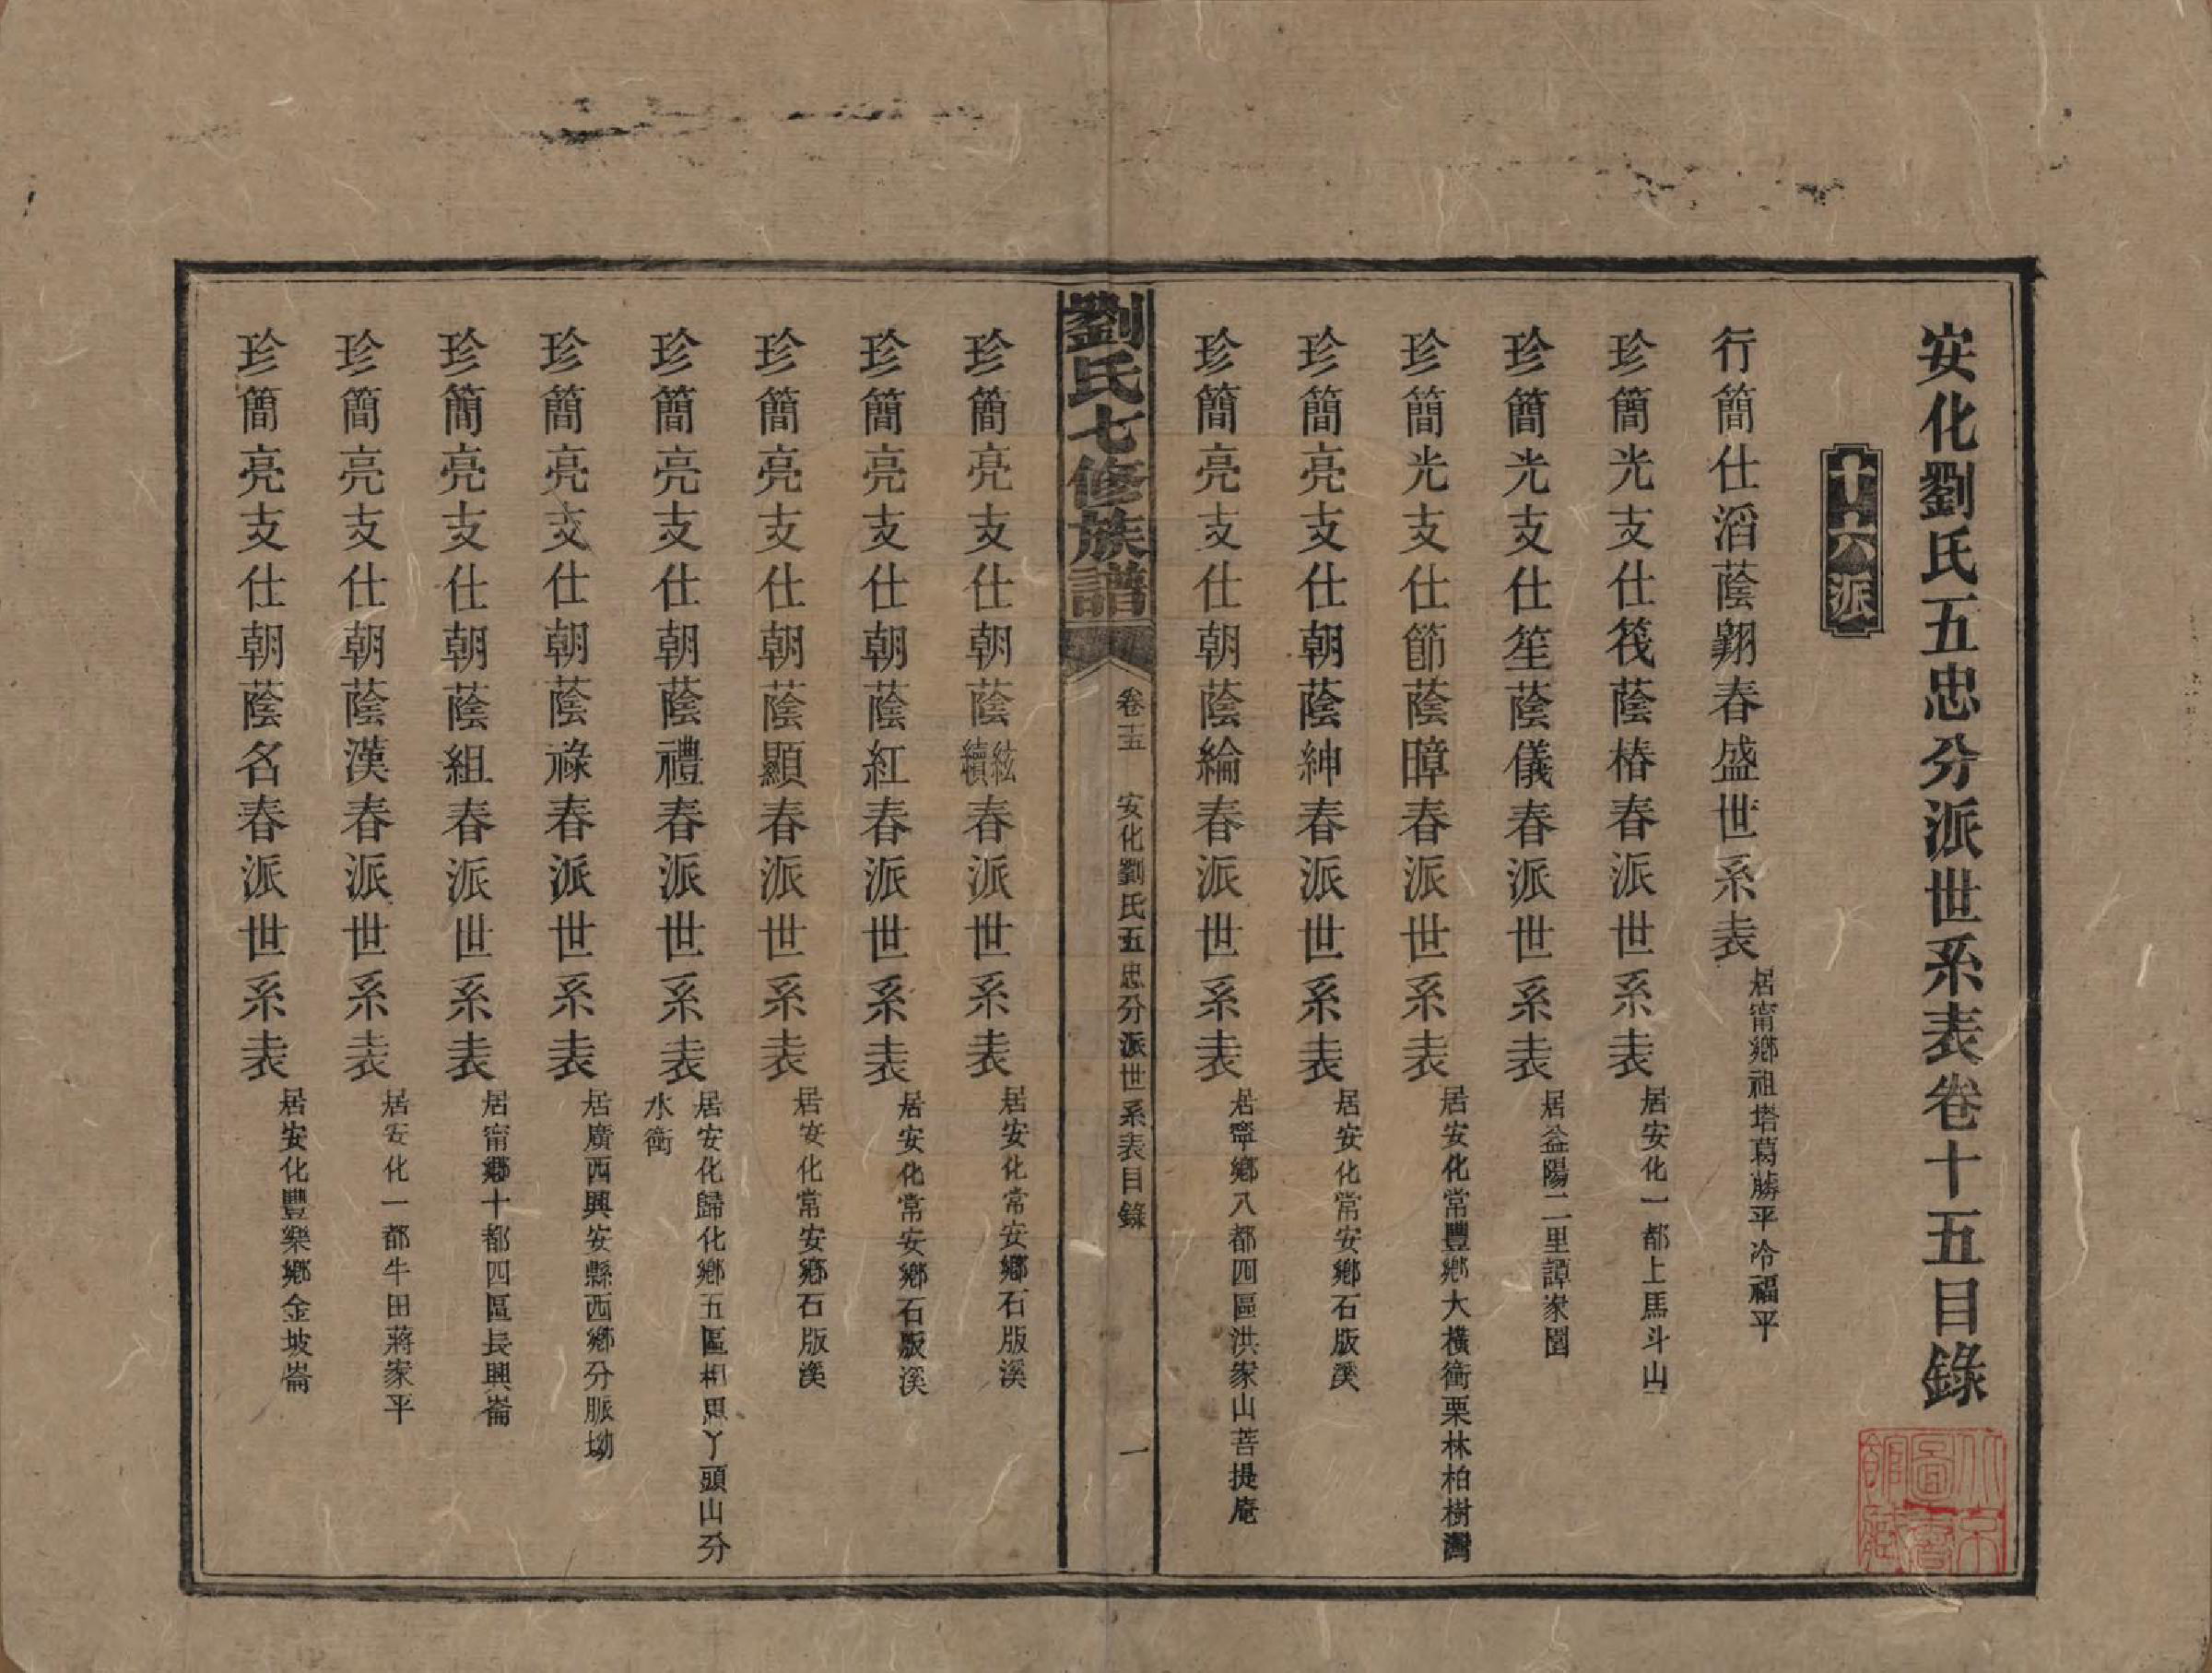 安化劉氏五忠分派世系表卷十五目錄
十六派
行簡仕滔蔭翱春盛世系表 居甯鄉祖塔葛藤平冷福平
珍簡光支仕筏蔭椿春派世系表 居安化一都上馬斗山
珍簡光支仕笙蔭儀春派世系表 居益陽二里譚家園
珍簡光支仕節蔭暲春派世系表 居安化常豐鄉大橫衝栗林柏樹灣
珍簡亮支仕朝蔭紳春派世系表 居安化常安鄉石版溪
珍簡亮支仕朝蔭綸春派世系表 居寧鄉八都四區洪家山菩提庵
劉氏七修族譜 卷十五 安化劉氏五忠分派世系表目錄 一
珍簡亮支仕朝蔭絃續春派世系表 居安化常安鄉石版溪
珍簡亮支仕朝蔭紅春派世系表 居安化常安鄉石版溪
珍簡亮支仕朝蔭顯春派世系表 居安化常安鄉石版溪
珍簡亮支仕朝蔭禮春派世系表 居安化歸化鄉五區相思丫頭山分
水衝
珍簡亮支仕朝蔭祿春派世系表 居廣西興安縣西鄉分脈坳
珍簡亮支仕朝蔭組春派世系表 居甯鄉十都四區長興崙
珍簡亮支仕朝蔭漢春派世系表 居安化一都牛田蔣家平
珍簡亮支仕朝蔭名春派世系表 居安化豐樂鄉金坡崙
北京
圖書
館藏